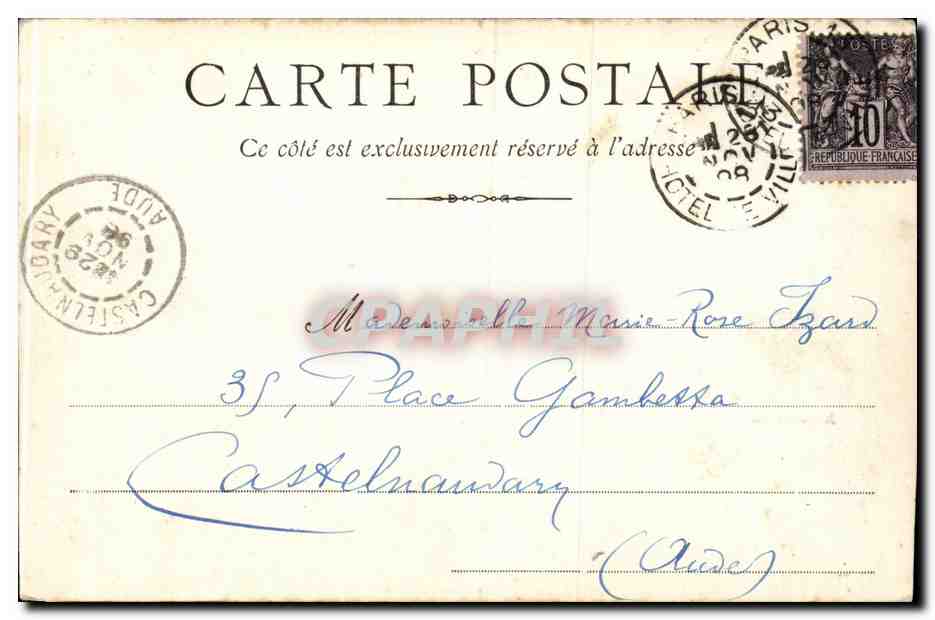 CARTE POSTALE
Ce côté est exclusivement réservé à l'adresse
PARIS
POSTE
10
REPUBLIQUE FRANÇAISE
PARIS
HOTEL DE VILLE
CASTELNAUDARY
AUDE
29
NOV
CPAPHIL
Mademoiselle Marie-Rose Izard
35, Place Gambetta
Castelnaudary
(Aude)